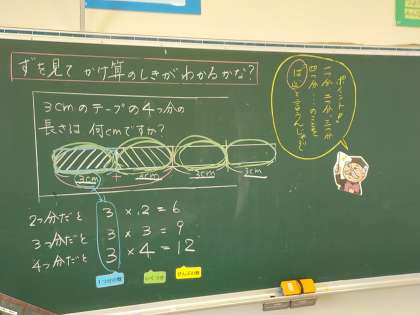 ずを見て かけ算のしきがわかるかな?
3cmのテープの4つ分の
長さは 何cmですか?
3cm + 3cm 3cm 3cm
2つ分だと 3×2=6
3つ分だと 3×3=9
4つ分だと 3×4=12
1つ分の数 いくつ分 ぜんぶの数
ポイントじゃ
二つ分、三つ分
四つ分…のことを
ばいと言うんじゃよ